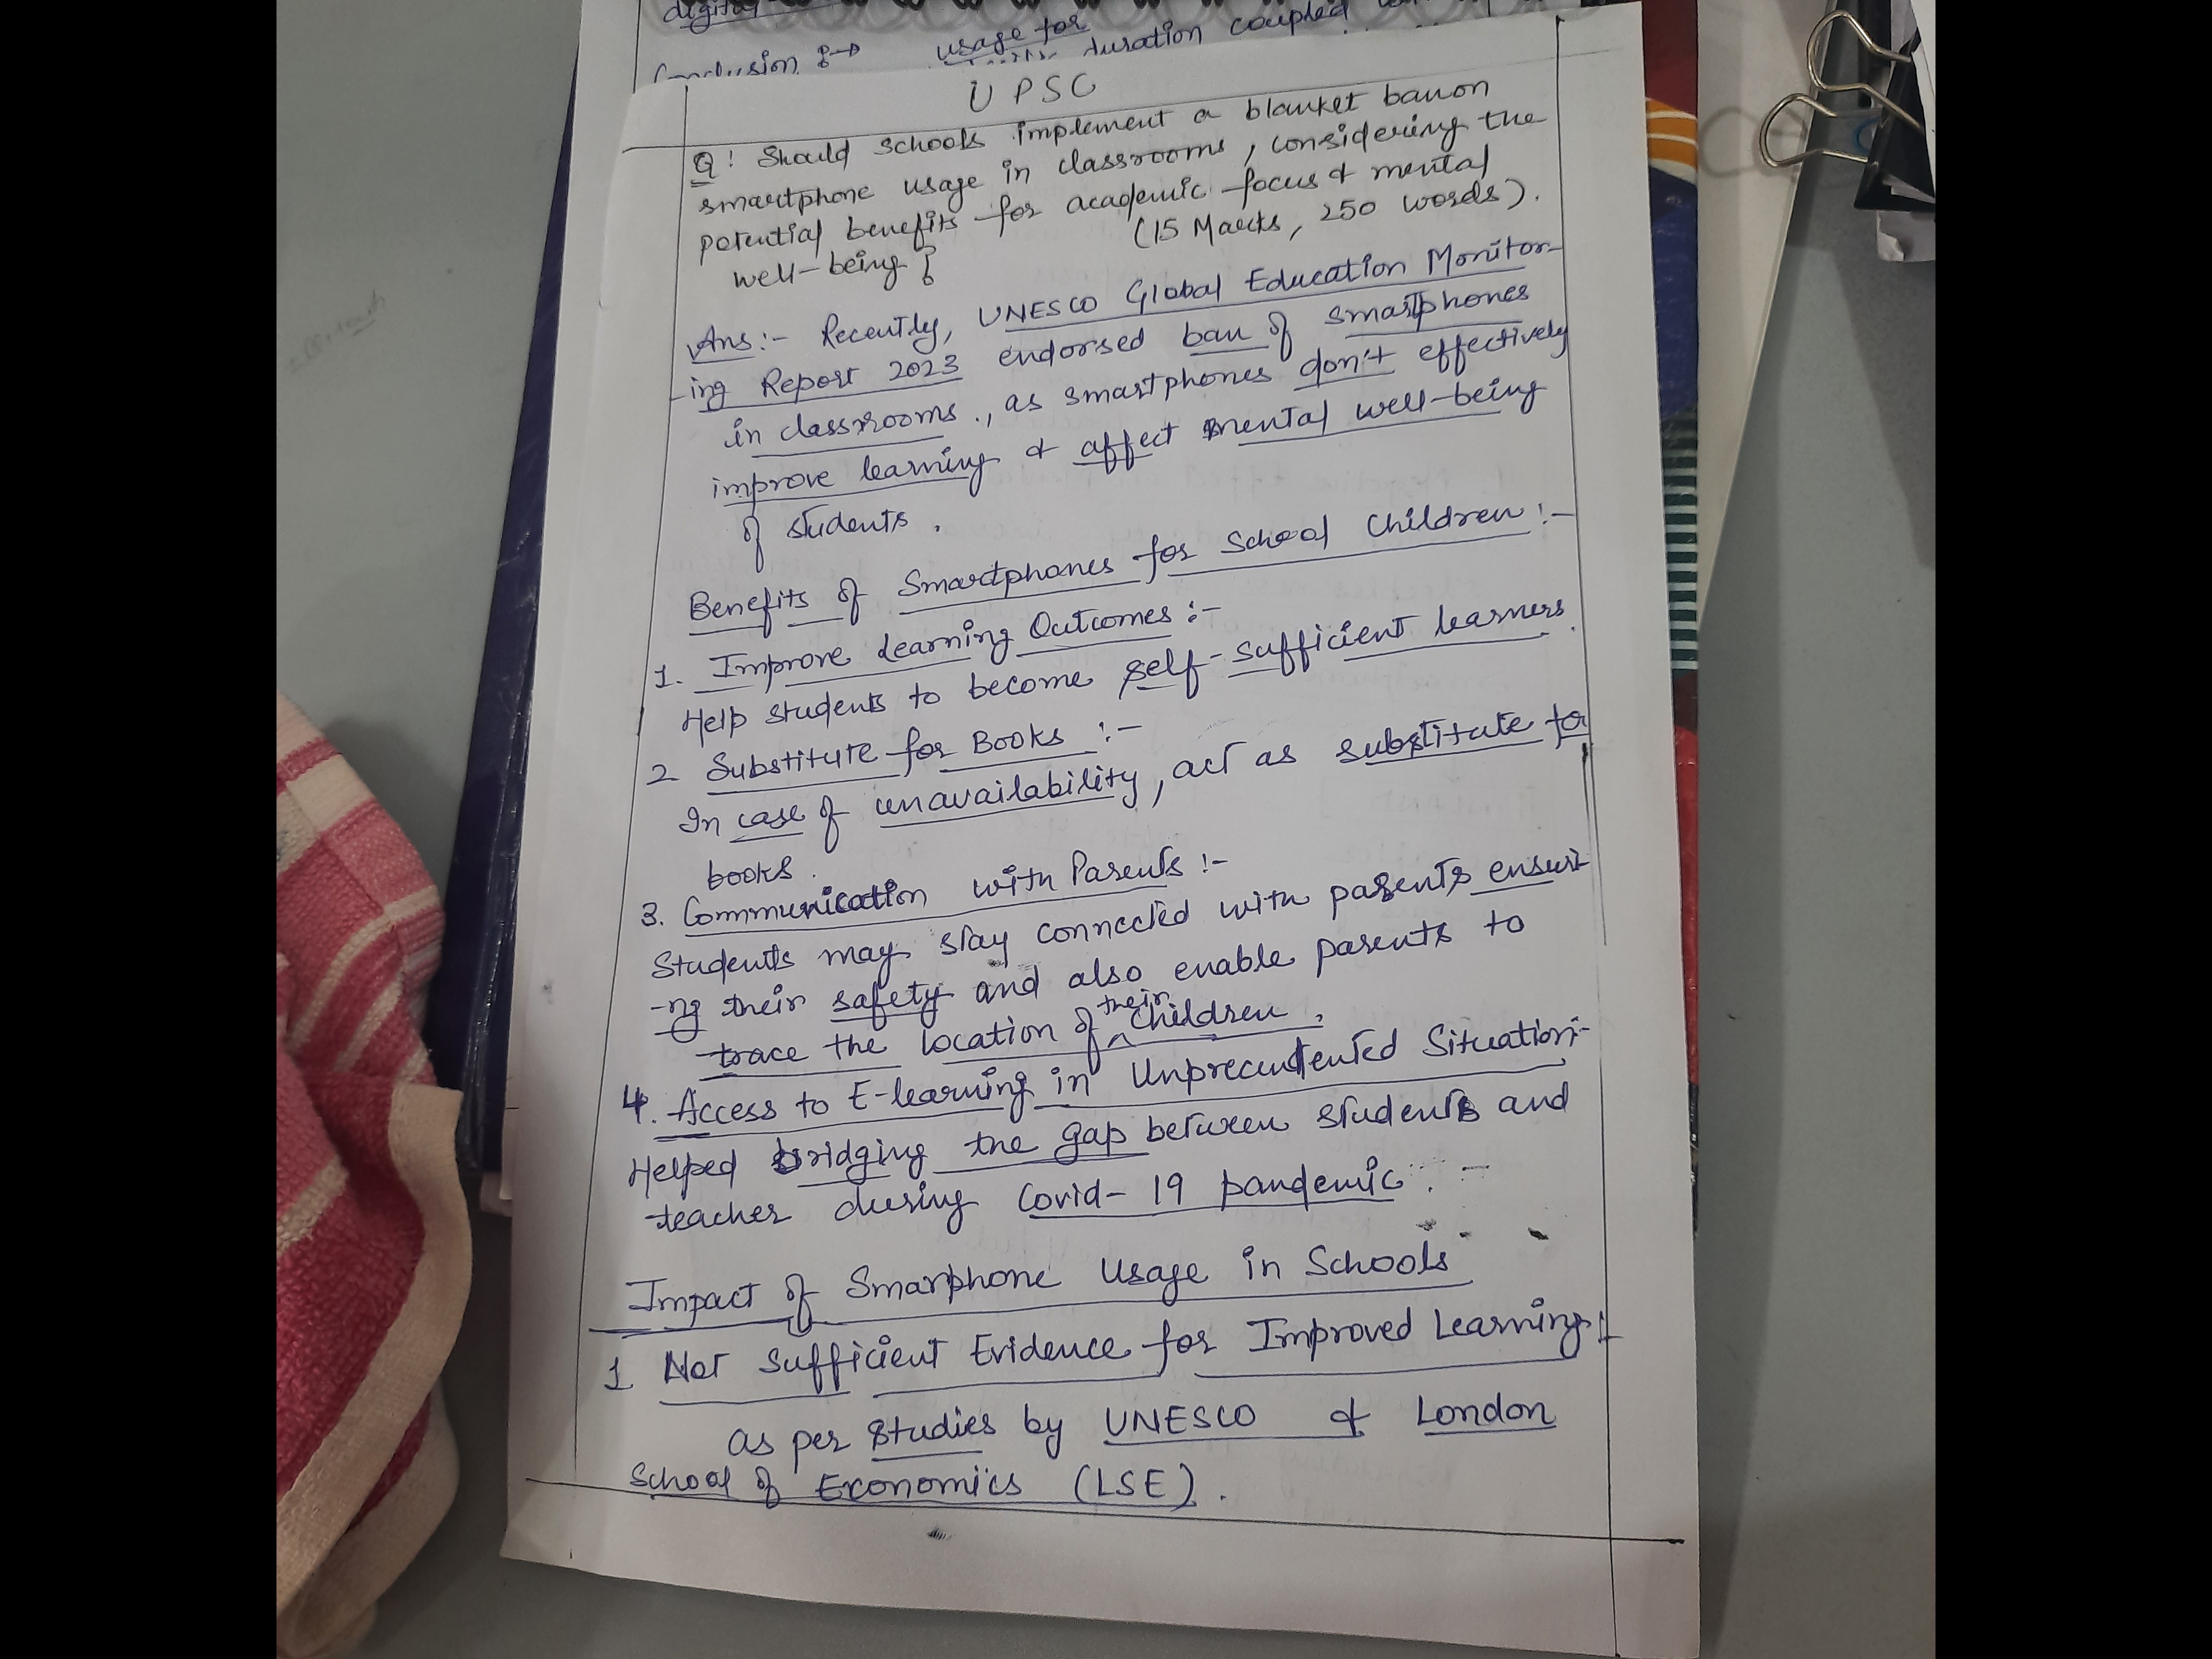 digital
Conclusion :→ usage for
duration coupled
UPSC
Q! Should schools implement a blanket ban on
smartphone usage in classrooms, considering the
potential benefits for academic focus & mental
well-being? (15 Marks, 250 words).
Ans:- Recently, UNESCO Global Education Monitor-
-ing Report 2023 endorsed ban of smartphones
in classrooms., as smartphones don't effectively
improve learning & affect mental well-being
of students.
Benefits of Smartphones for School Children:-
1. Improve Learning Outcomes:-
Help students to become self-sufficient learners.
2 Substitute for Books :-
In case of unavailability, act as substitute for
books.
3. Communication with Parents :-
Students may stay connected with parents ensuri-
-ng their safety and also enable parents to
trace the location of their children.
4. Access to E-learning in Unprecendented Situation:-
Helped bridging the gap between students and
teacher during Covid-19 pandemic.
Impact of Smarphone Usage in Schools
1 Not Sufficient Evidence for Improved Learning:-
as per studies by UNESCO & London
School of Economics (LSE).